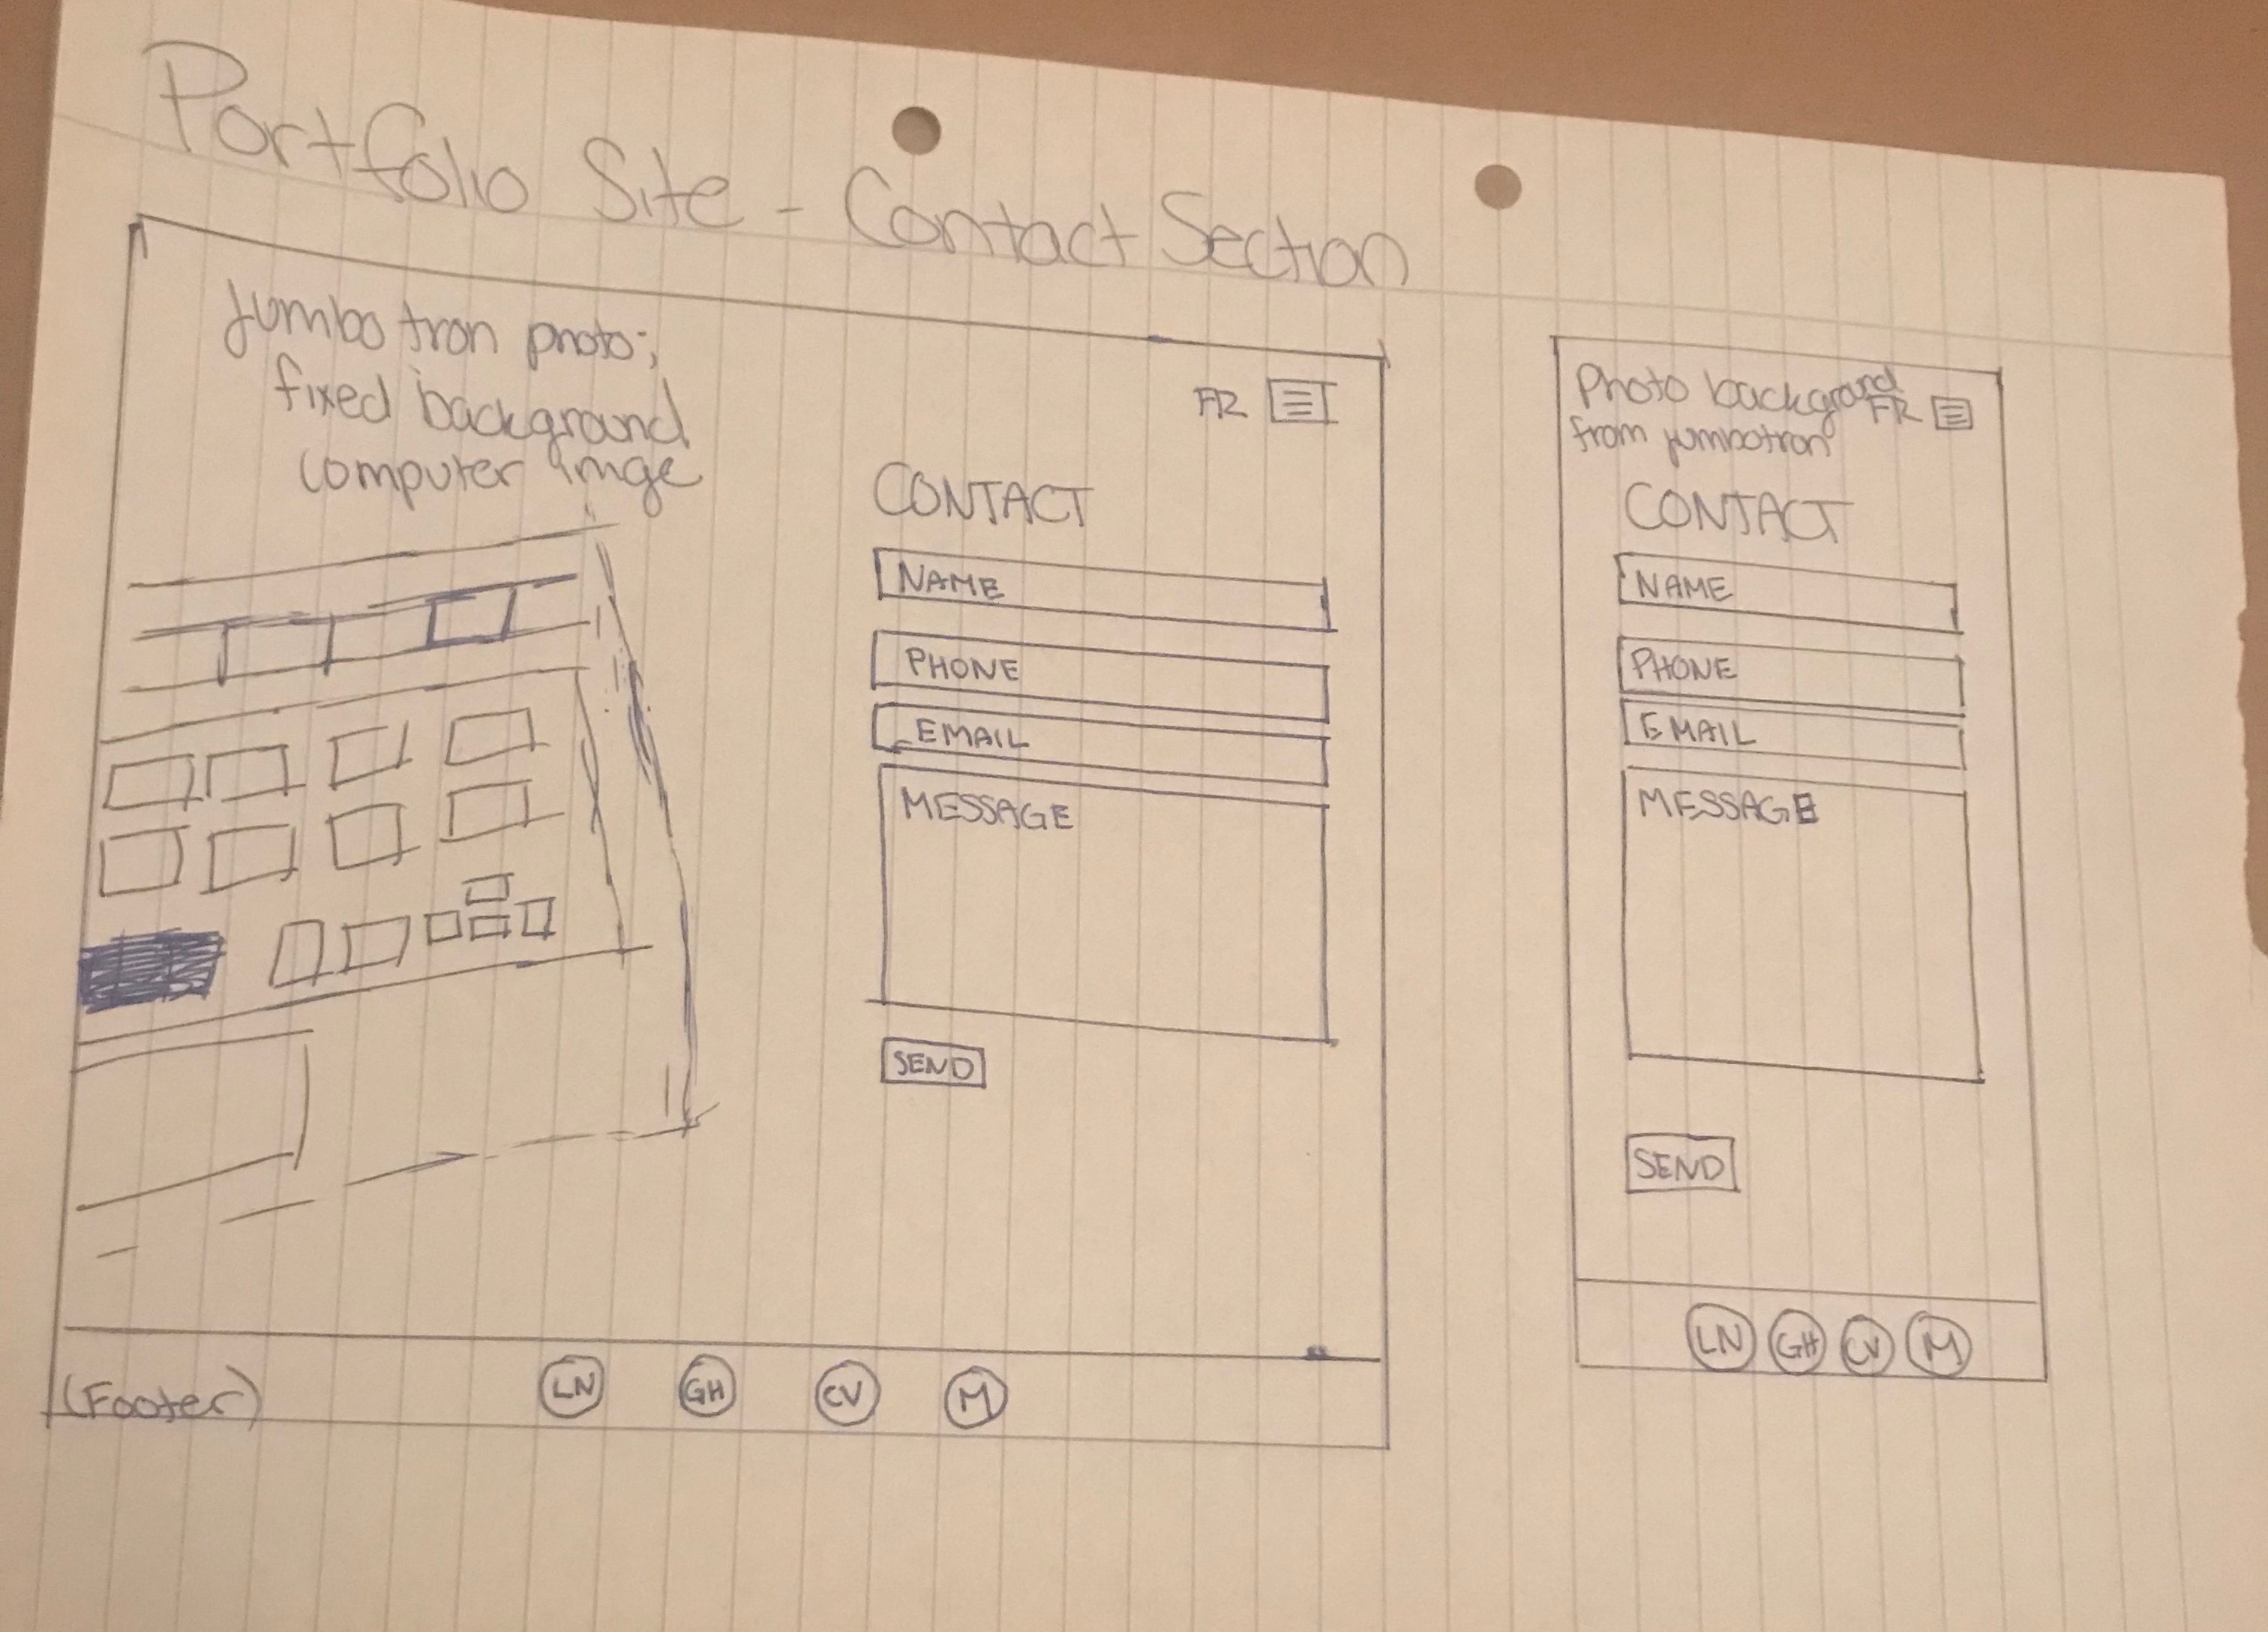 Portfolio Site - Contact Section
Jumbotron photo;
fixed background
computer imge
FR
CONTACT
NAME
PHONE
EMAIL
MESSAGE
SEND
(Footer)
LN GH CV M
Photo background
from jumbotron
FR
CONTACT
NAME
PHONE
EMAIL
MESSAGE
SEND
LN GH CV M